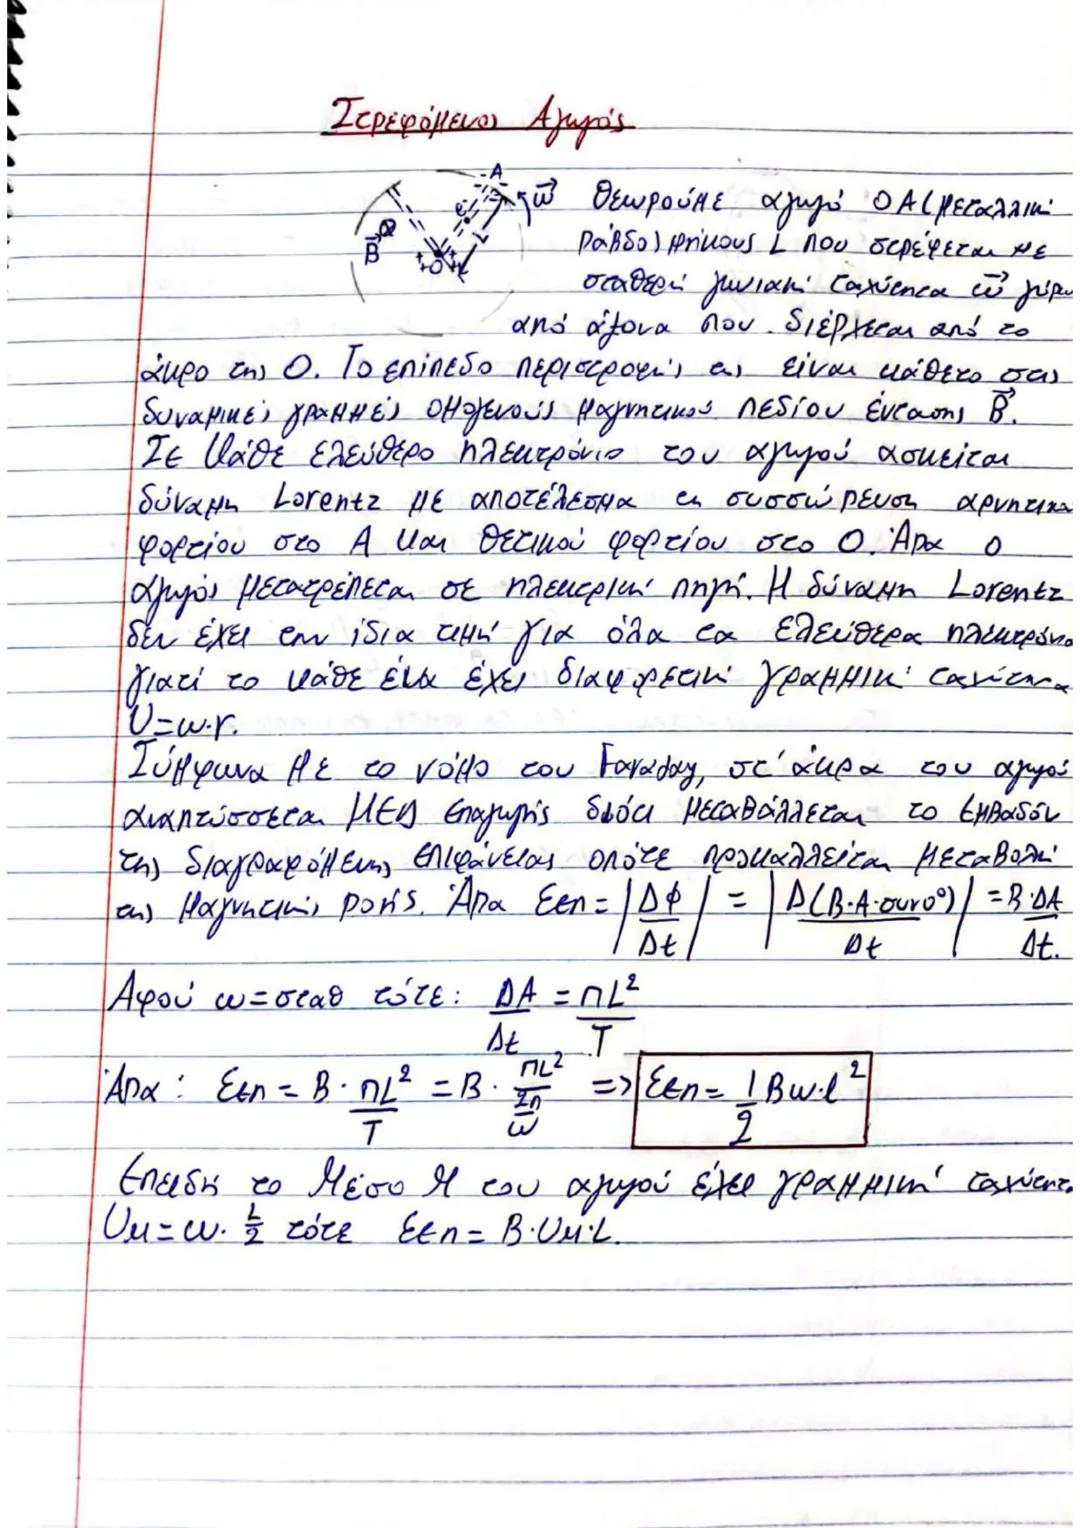 Στρεφόμενος Αγωγός
A
ω
B
O
L
Θεωρούμε αγωγό ΟΑ (μεταλλική
ράβδο) μήκους L που στρέφεται με
σταθερή γωνιακή ταχύτητα ω γύρω
από άξονα που διέρχεται από το
άκρο της Ο. Το επίπεδο περιστροφής της είναι κάθετο στις
δυναμικές γραμμές ομογενούς μαγνητικού πεδίου έντασης B.
Σε κάθε ελεύθερο ηλεκτρόνιο του αγωγού ασκείται
δύναμη Lorentz με αποτέλεσμα τη συσσώρευση αρνητικο
φορτίου στο Α και θετικού φορτίου στο Ο. Άρα ο
αγωγός μετατρέπεται σε ηλεκτρική πηγή. Η δύναμη Lorentz
δεν έχει την ίδια τιμή για όλα τα ελεύθερα ηλεκτρόνια
γιατί το κάθε ένα έχει διαφορετική γραμμική ταχύτητα
υ=ω·r.
Σύμφωνα με το νόμο του Faraday, στ' άκρα του αγωγού
αναπτύσσεται ΗΕΔ επαγωγής διότι μεταβάλλεται το εμβαδόν
της διαγραφόμενης επιφάνειας οπότε προκαλλείται μεταβολή
της μαγνητικής ροής. Άρα Εεπ = |ΔΦ/Δt| = |Δ(Β·Α·συν0°)/Δt| = Β·ΔΑ/Δt.
Αφού ω=σταθ τότε: ΔΑ/Δt = πL²/T
Άρα: Εεπ = Β·πL²/T = Β·πL²/(2π/ω) => Εεπ = 1/2 Βω·l²
Επειδή το μέσο Μ του αγωγού έχει γραμμική ταχύτητα
υΜ = ω·L/2 τότε Εεπ = Β·υΜ·L.